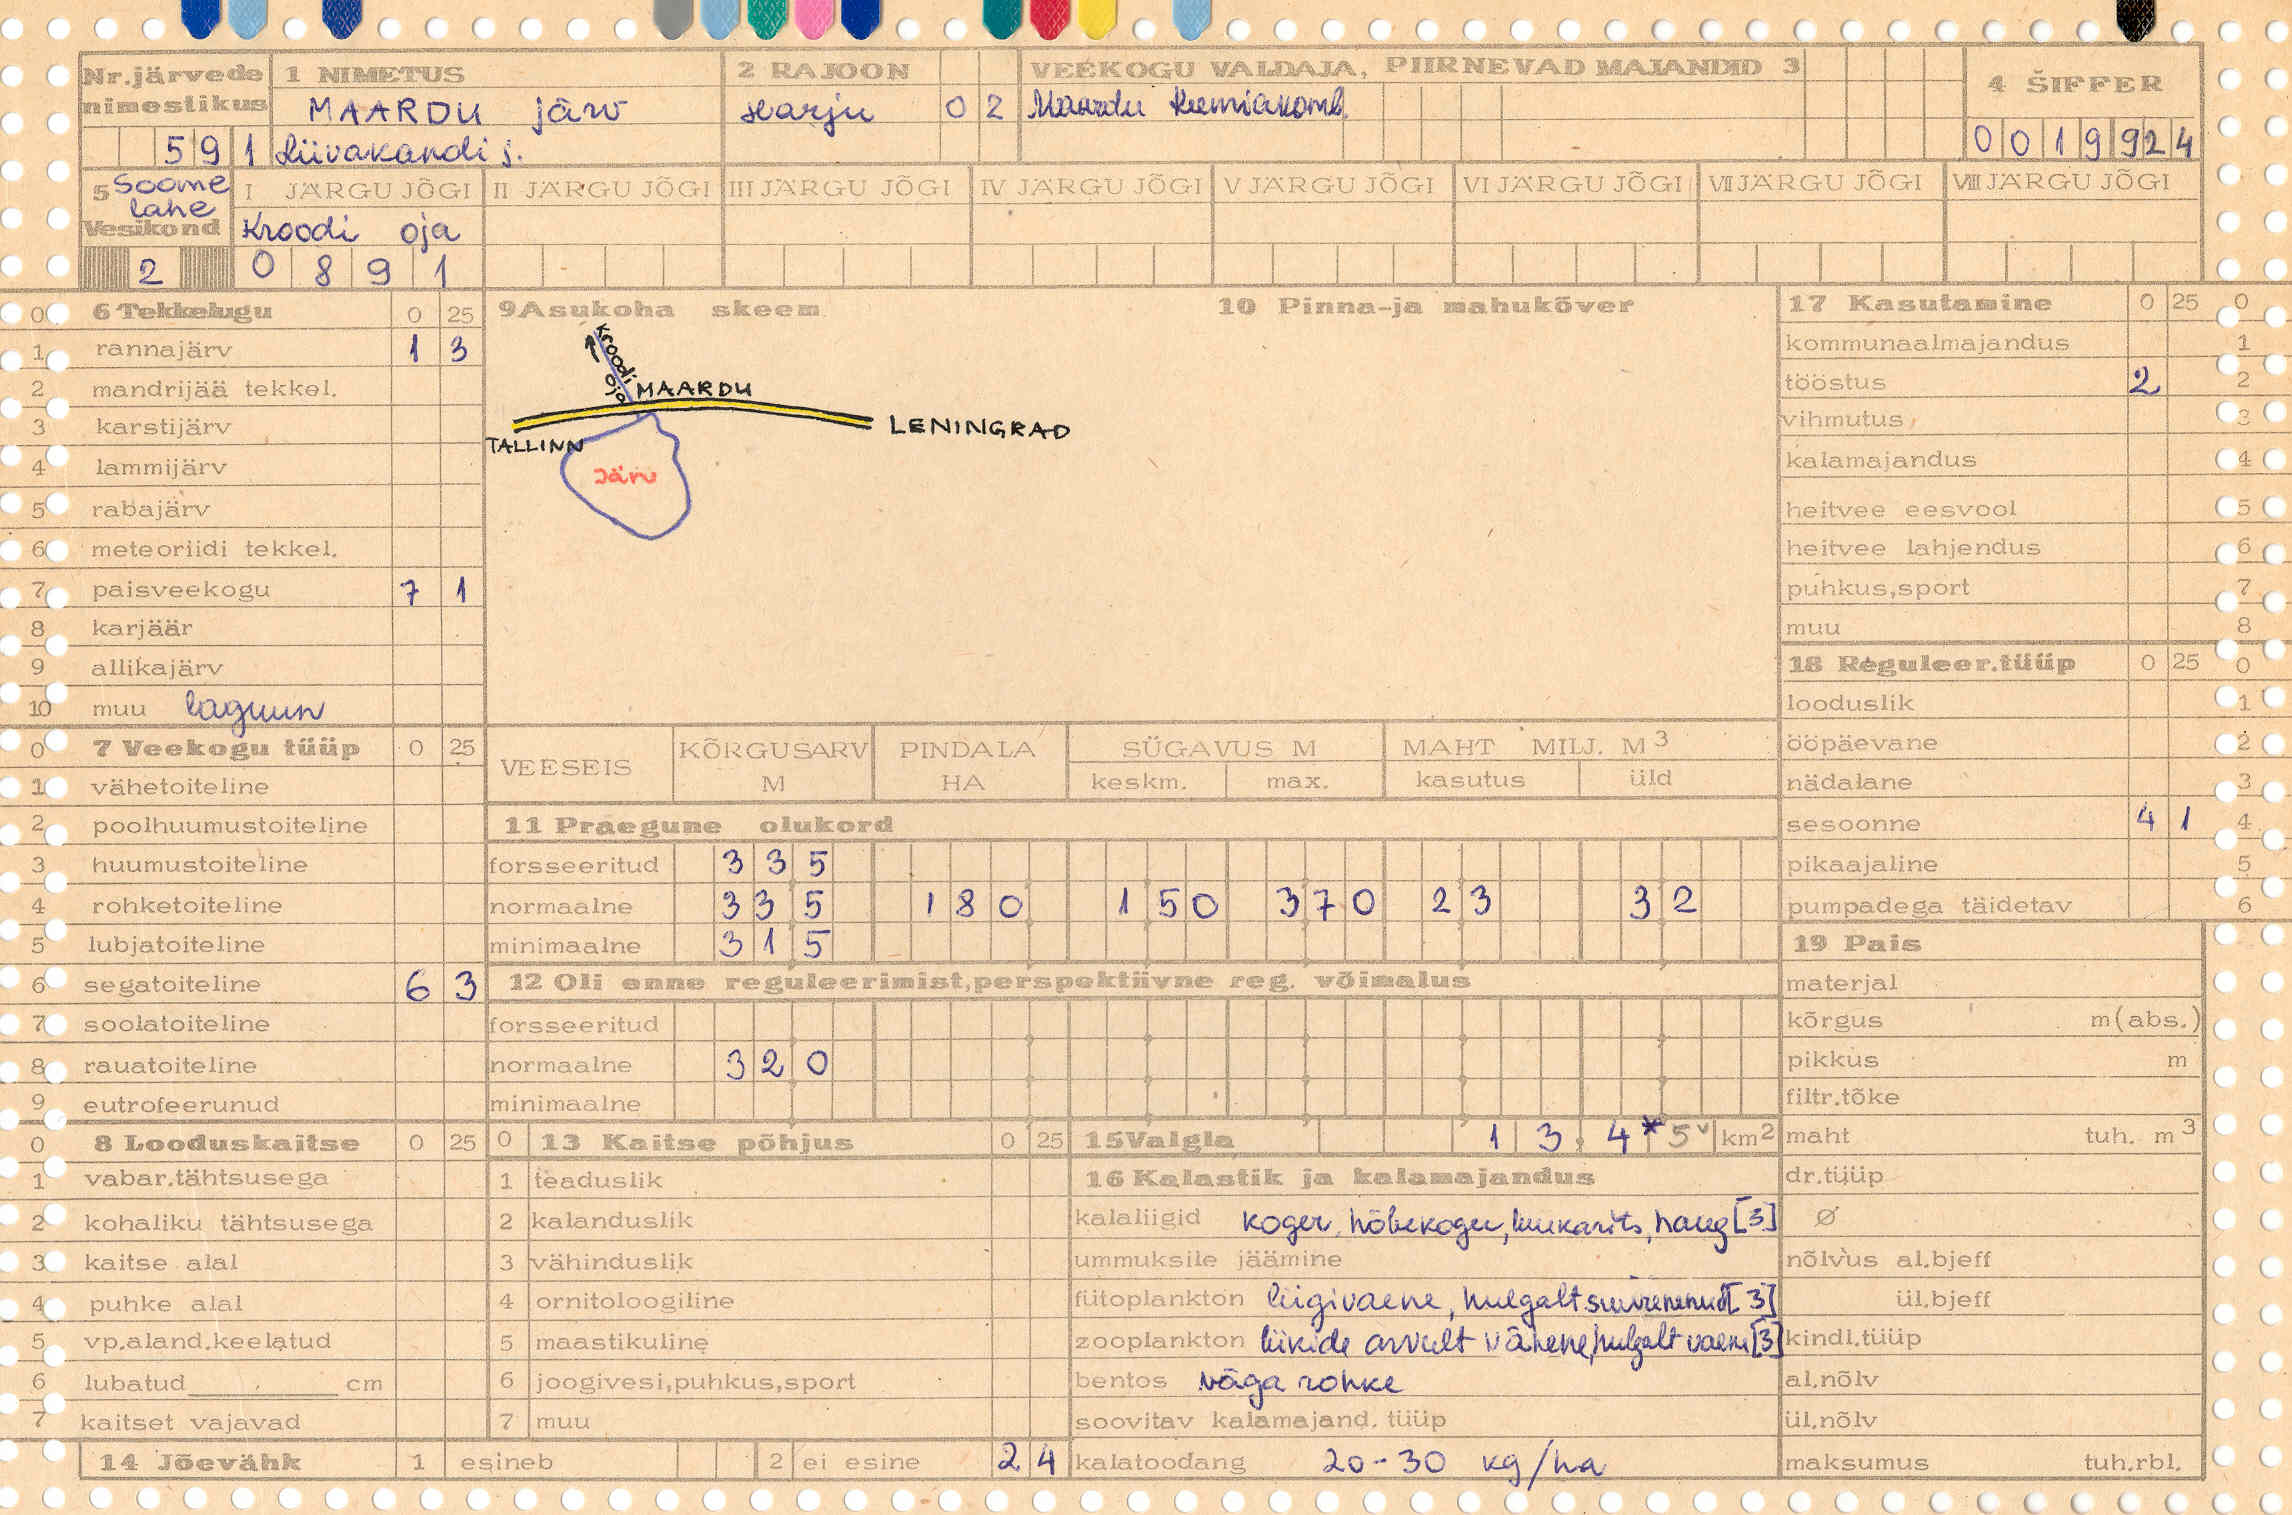 Nr.järvede nimestikus
591
1 NIMETUS
MAARDU järv
Liivakandi j.
2 RAJOON
Harju 02
VEEKOGU VALDAJA, PIIRNEVAD MAJANDID 3
Maardu Keemiakomb.
4 ŠIFFER
0019924
5 Soome lahe Vesikond
2
I JÄRGU JÕGI II JÄRGU JÕGI III JÄRGU JÕGI IV JÄRGU JÕGI V JÄRGU JÕGI VI JÄRGU JÕGI VII JÄRGU JÕGI VIII JÄRGU JÕGI
Kroodi oja
0891
0 6 Tekkelugu 0 25
1 rannajärv 1 3
2 mandrijää tekkel.
3 karstijärv
4 lammijärv
5 rabajärv
6 meteoriidi tekkel.
7 paisveekogu 7 1
8 karjäär
9 allikajärv
10 muu laguun
9 Asukoha skeem
Kroodi oja
MAARDU
TALLINN
LENINGRAD
Järv
10 Pinna-ja mahukõver
17 Kasutamine 0 25 0
kommunaalmajandus 1
tööstus 2 2
vihmutus 3
kalamajandus 4
heitvee eesvool 5
heitvee lahjendus 6
puhkus,sport 7
muu 8
18 Reguleer.tüüp 0 25 0
looduslik 1
ööpäevane 2
nädalane 3
sesoonne 4 1 4
pikaajaline 5
pumpadega täidetav 6
0 7 Veekogu tüüp 0 25
1 vähetoiteline
2 poolhuumustoiteline
3 huumustoiteline
4 rohketoiteline
5 lubjatoiteline
6 segatoiteline 6 3
7 soolatoiteline
8 rauatoiteline
9 eutrofeerunud
VEESEIS KÕRGUSARV M PINDALA HA SÜGAVUS M keskm. max. MAHT MILJ. M3 kasutus üld
11 Praegune olukord
forsseeritud 335
normaalne 335 180 150 370 23 32
minimaalne 315
12 Oli enne reguleerimist,perspektiivne reg. võimalus
forsseeritud
normaalne 320
minimaalne
19 Pais
materjal
kõrgus m(abs.)
pikkus m
filtr.tõke
maht tuh. m3
dr.tüüp
Ø
nõlvus al.bjeff
ül.bjeff
kindl.tüüp
al.nõlv
ül.nõlv
maksumus tuh.rbl.
0 8 Looduskaitse 0 25
1 vabar.tähtsusega
2 kohaliku tähtsusega
3 kaitse alal
4 puhke alal
5 vp.aland.keelatud
6 lubatud cm
7 kaitset vajavad
0 13 Kaitse põhjus 0 25
1 teaduslik
2 kalanduslik
3 vähinduslik
4 ornitoloogiline
5 maastikuline
6 joogivesi,puhkus,sport
7 muu
15 Valgla 13 4* 5 km2
16 Kalastik ja kalamajandus
kalaliigid koger, hõbekoger, luukarits, haug [3]
ummuksile jäämine
fütoplankton liigivaene, hulgalt suurenenud [3]
zooplankton liikide arvult vähene, hulgalt vaene [3]
bentos väga rohke
soovitav kalamajand. tüüp
kalatoodang 20-30 kg/ha
14 Jõevähk 1 esineb 2 ei esine 2 4